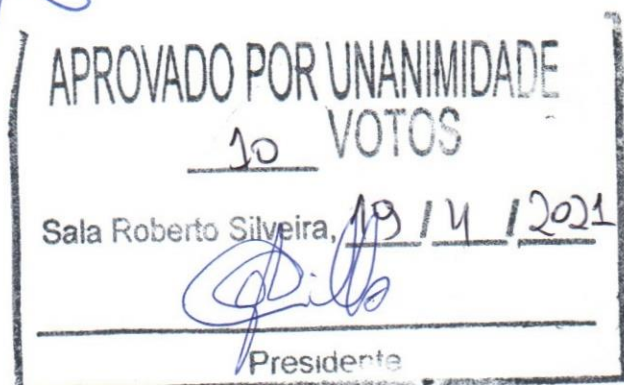 APROVADO POR UNANIMIDADE
10 VOTOS
Sala Roberto Silveira, 19 / 4 / 2021
Presidente